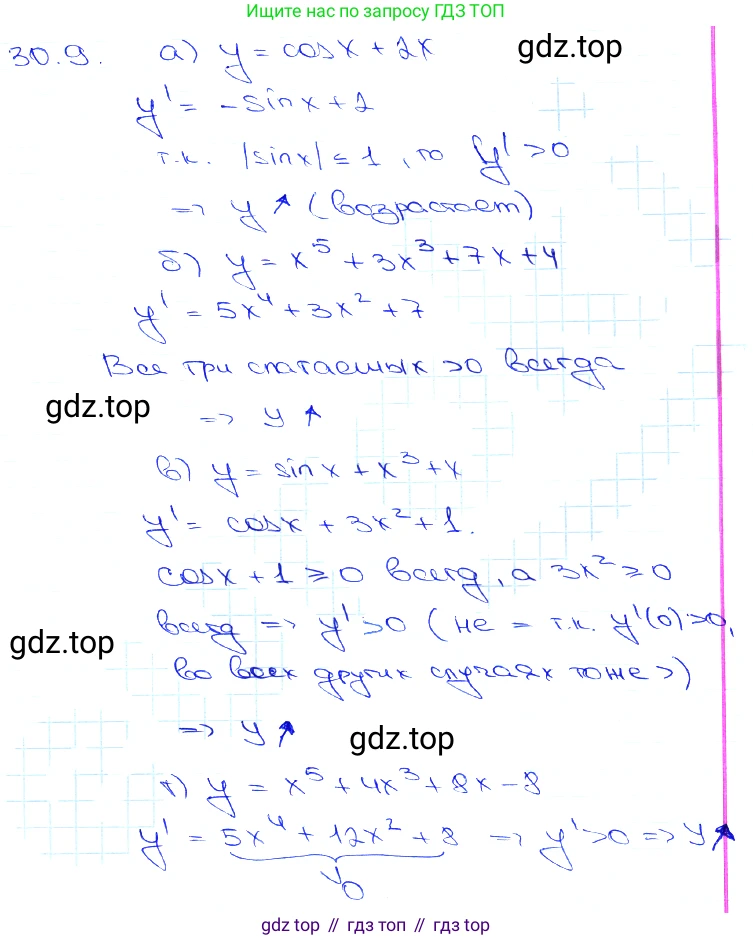 Ищите нас по запросу ГДЗ ТОП
30.9. а) y = cosx + 2x
gdz.top
y' = -sinx + 2
т.к. |sinx| ≤ 1, то y' > 0
=> y ↑ (возрастает)
б) y = x⁵ + 3x³ + 7x + 4
y' = 5x⁴ + 3x² + 7
Все три слагаемых >0 всегда
gdz.top
=> y ↑
в) y = sinx + x³ + x
y' = cosx + 3x² + 1.
cosx + 1 ≥ 0 всегд, а 3x² ≥ 0
всегд => y' > 0 (не = т.к. y'(0) > 0,
gdz.top
во всех других случаях тоже >)
=> y ↑
gdz.top
г) y = x⁵ + 4x³ + 8x - 8
y' = 5x⁴ + 12x² + 8 => y' > 0 => y ↑
∨
0
gdz top // гдз топ // gdz top